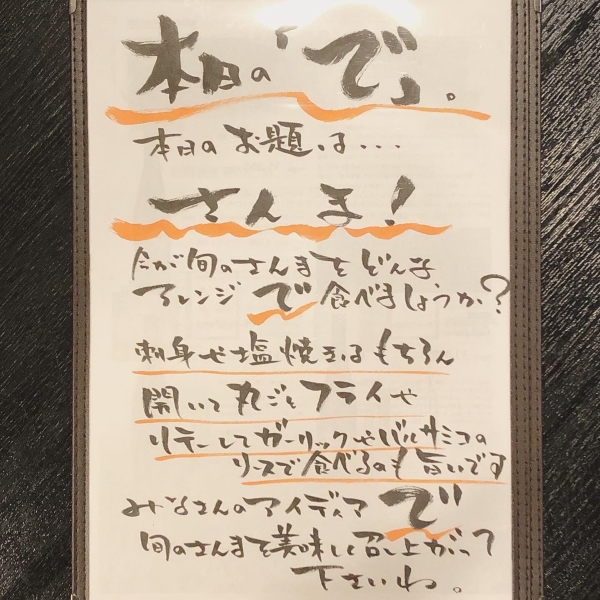 本日の「で」。
本日のお題は...
さんま!
今が旬のさんまをどんな
アレンジで食べましょうか?
刺身や塩焼きはもちろん
開いて丸ごとフライや
ソテーしてガーリックやバルサミコの
ソースで食べるのも旨いです
みなさんのアイディアで
旬のさんまを美味しく召し上がって
下さいね。